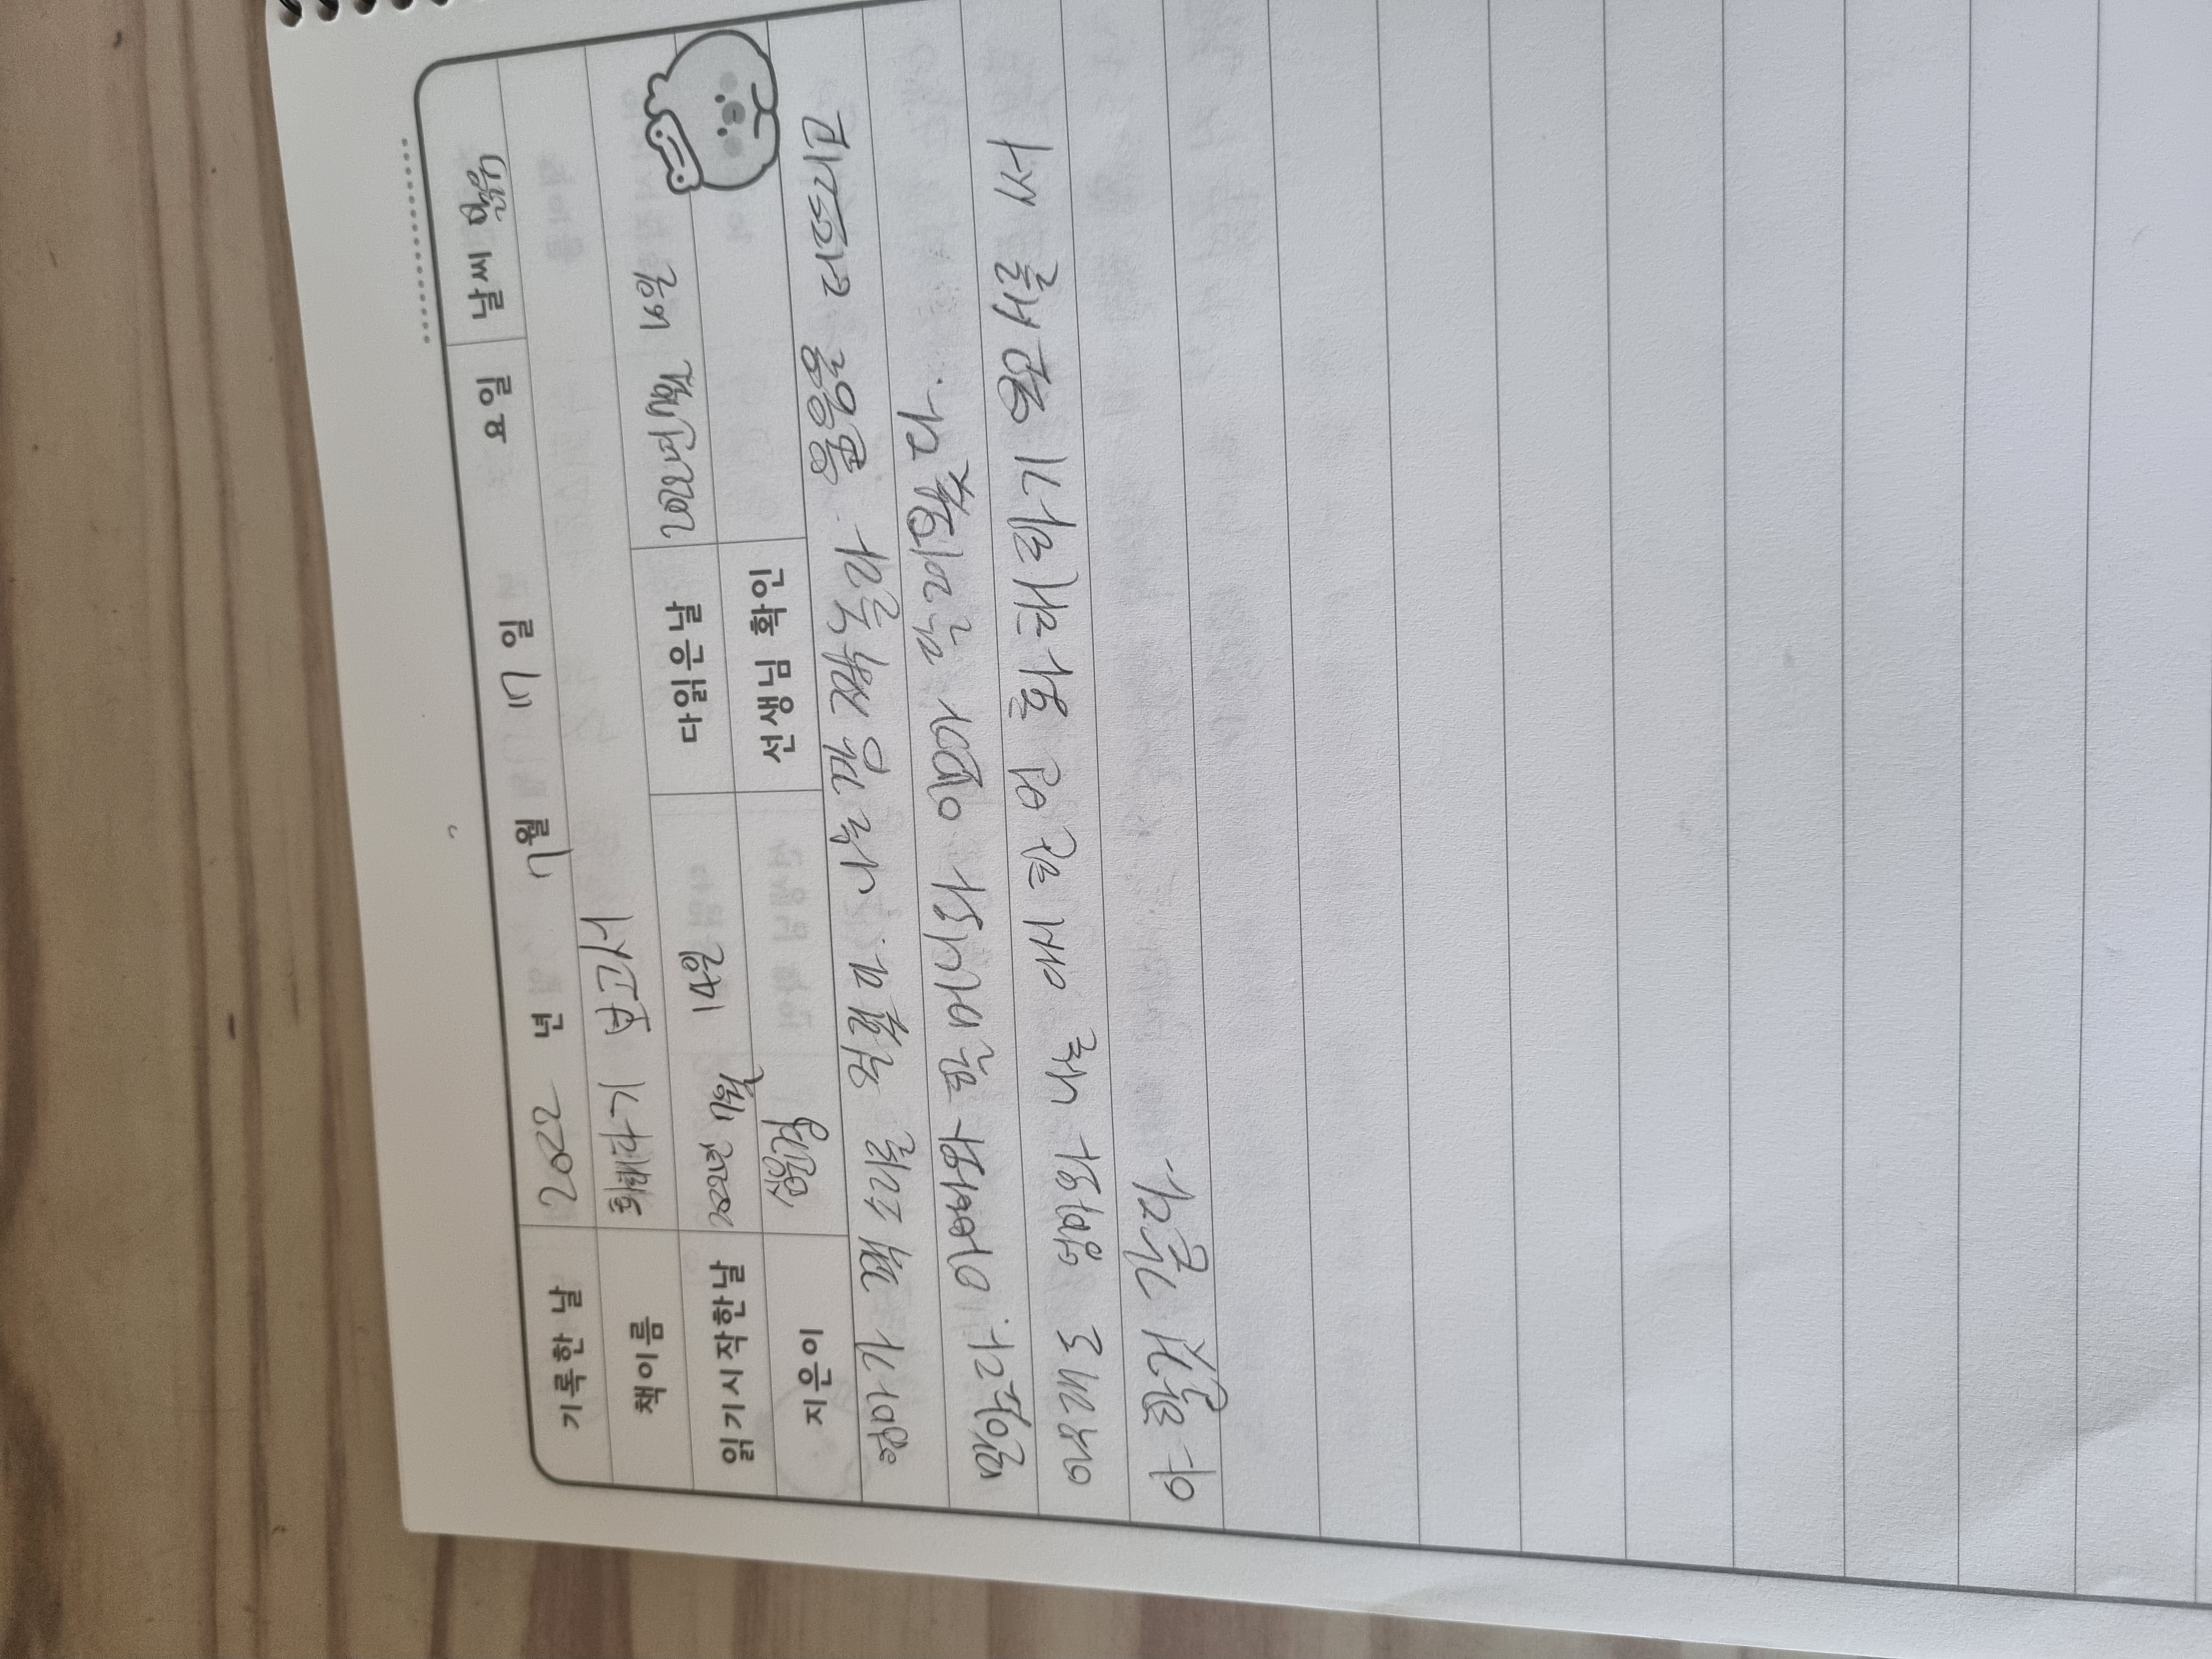 기록한 날 2022 년 7월 17 일 요일 날씨 맑음
책이름 화해하기 보고서
읽기시작한날 2022년 7월 14일 다읽은날 2022년 7월
지은이 심윤경 선생님 확인
엄마가 꽥 소리를 질렀다. 나는 깜짝 놀라 울음을 터뜨리고
말았다. 아빠와 할머니와 달려왔다.
아무래도 엄마와 나는 다시 한 번 화해하기 보고서를 써
야 할것 같다.